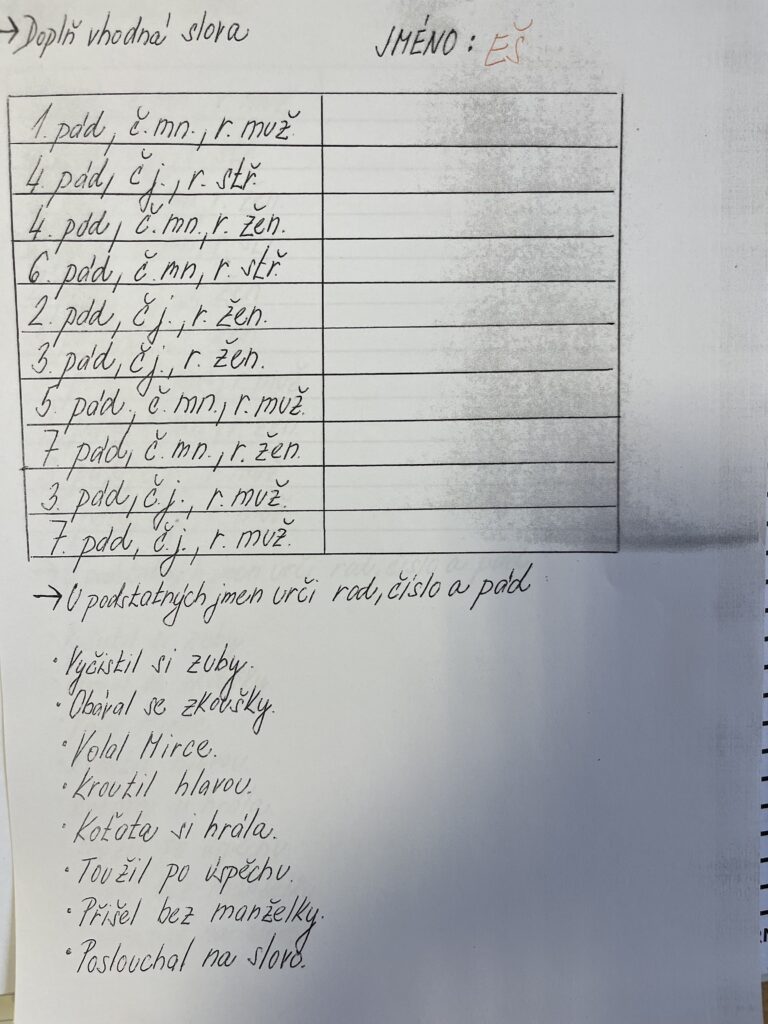 → Doplň vhodná slova
JMÉNO: EŠ
1. pád, č. mn., r. muž.
4. pád, č j., r. stř.
4. pád, č. mn., r. žen.
6. pád, č. mn, r. stř.
2. pád, č j., r. žen.
3. pád, č j., r. žen.
5. pád, č. mn., r. muž.
7. pád, č. mn., r. žen.
3. pád, č. j., r. muž.
7. pád, č. j., r. muž.
→ U podstatných jmen urči rod, číslo a pád
• Vyčistil si zuby.
• Obával se zkoušky.
• Volal Mirce.
• Kroutil hlavou.
• Koťata si hrála.
• Toužil po úspěchu.
• Přišel bez manželky.
• Poslouchal na slovo.